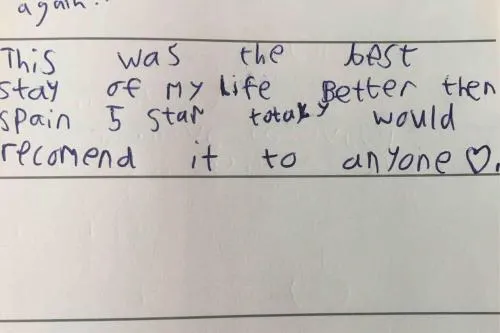 again..
This was the best
stay of my Life Better then
spain 5 star totaly would
recomend it to anyone ♡.